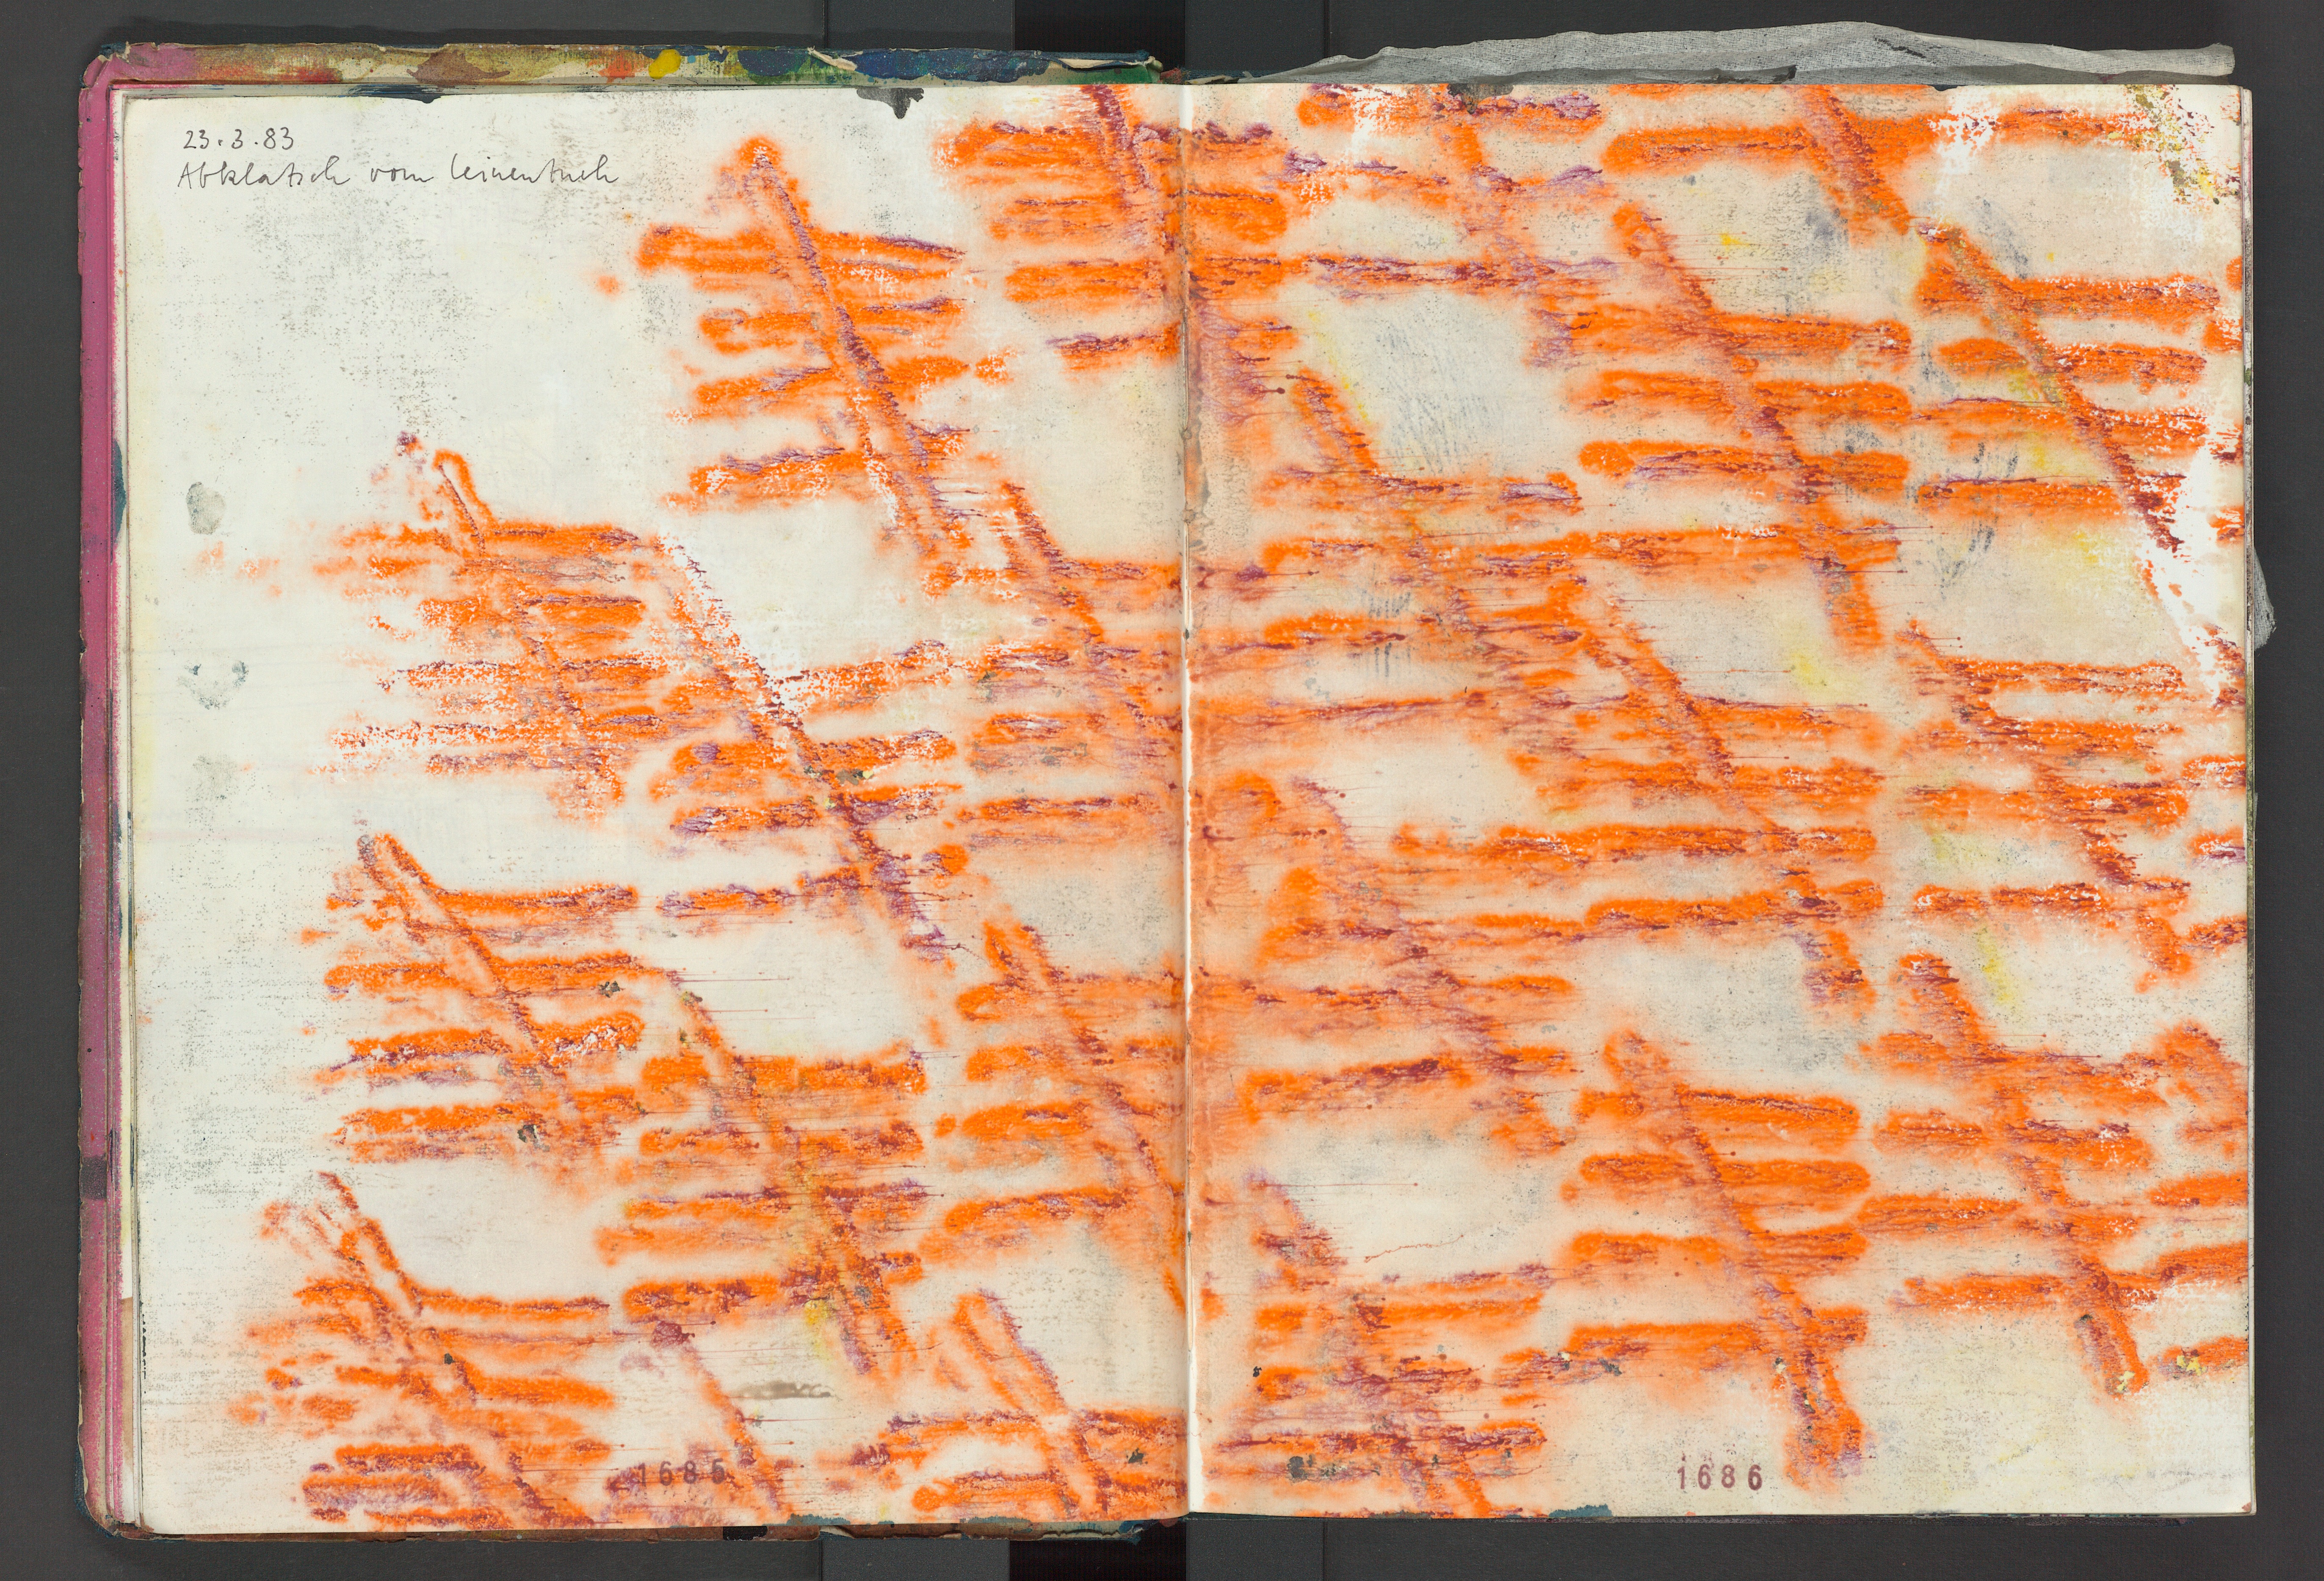 23.3.83
Abklatsch vom Leinentuch
1685
1686